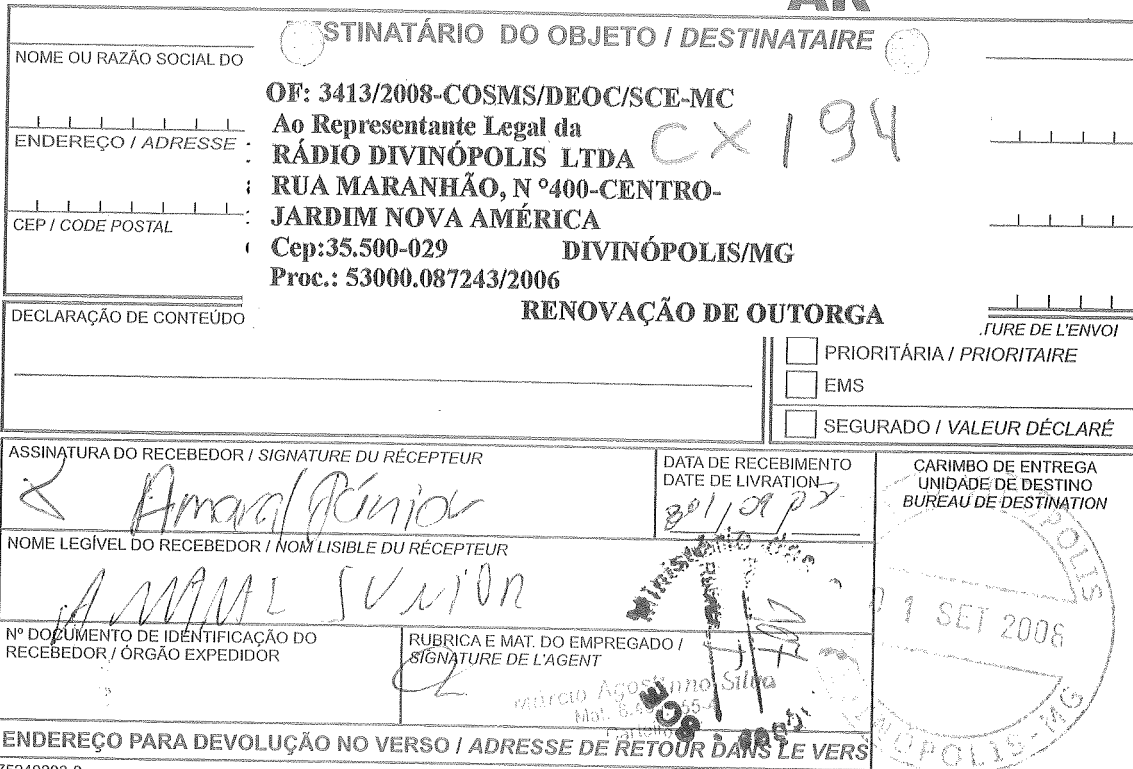 AR
STINATÁRIO DO OBJETO / DESTINATAIRE
NOME OU RAZÃO SOCIAL DO
OF: 3413/2008-COSMS/DEOC/SCE-MC
Ao Representante Legal da
CX 194
RÁDIO DIVINÓPOLIS LTDA
ENDEREÇO / ADRESSE
RUA MARANHÃO, N º400-CENTRO-
JARDIM NOVA AMÉRICA
CEP / CODE POSTAL
Cep:35.500-029 DIVINÓPOLIS/MG
Proc.: 53000.087243/2006
RENOVAÇÃO DE OUTORGA
DECLARAÇÃO DE CONTEÚDO
TURE DE L'ENVOI
PRIORITÁRIA / PRIORITAIRE
EMS
SEGURADO / VALEUR DÉCLARÉ
ASSINATURA DO RECEBEDOR / SIGNATURE DU RÉCEPTEUR
Amaral Júnior
DATA DE RECEBIMENTO
DATE DE LIVRATION
CARIMBO DE ENTREGA
UNIDADE DE DESTINO
BUREAU DE DESTINATION
NOME LEGÍVEL DO RECEBEDOR / NOM LISIBLE DU RÉCEPTEUR
AMARAL JUNIOR
Ministério das
1 SET 2008
Nº DOCUMENTO DE IDENTIFICAÇÃO DO
RECEBEDOR / ÓRGÃO EXPEDIDOR
RUBRICA E MAT. DO EMPREGADO /
SIGNATURE DE L'AGENT
Márcio Agostinho Silva
SCE
NOPOLIS-MG
ENDEREÇO PARA DEVOLUÇÃO NO VERSO / ADRESSE DE RETOUR DANS LE VERS